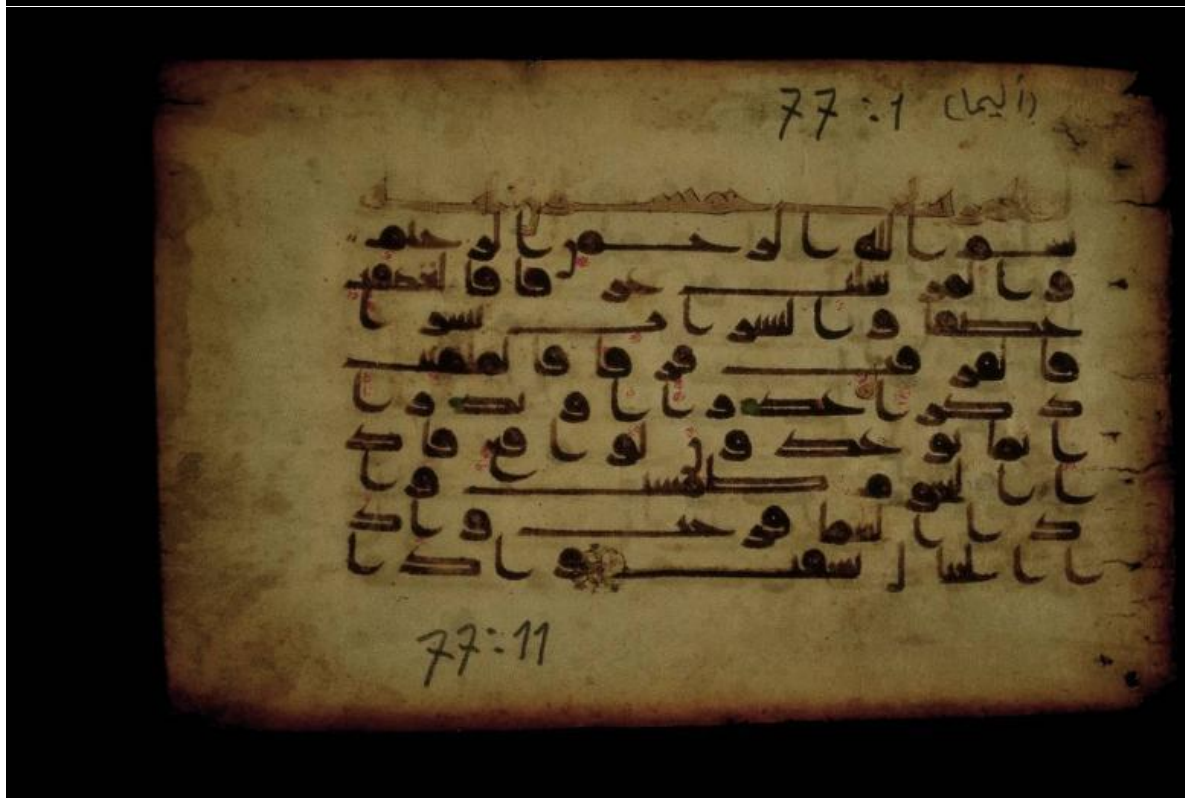 77:1 (أليما)
بسم الله الرحمن الرحيم
والمرسلت عرفا فالعصفت
عصفا والنشرات نشرا
فالفرقت فرقا فالملقيت
ذكرا عذرا او نذرا
انما توعدون لواقع فاذ
ا النجوم طمست وا
ذا السما فرجت واذ
ا الجبال نسفت واذا
77:11